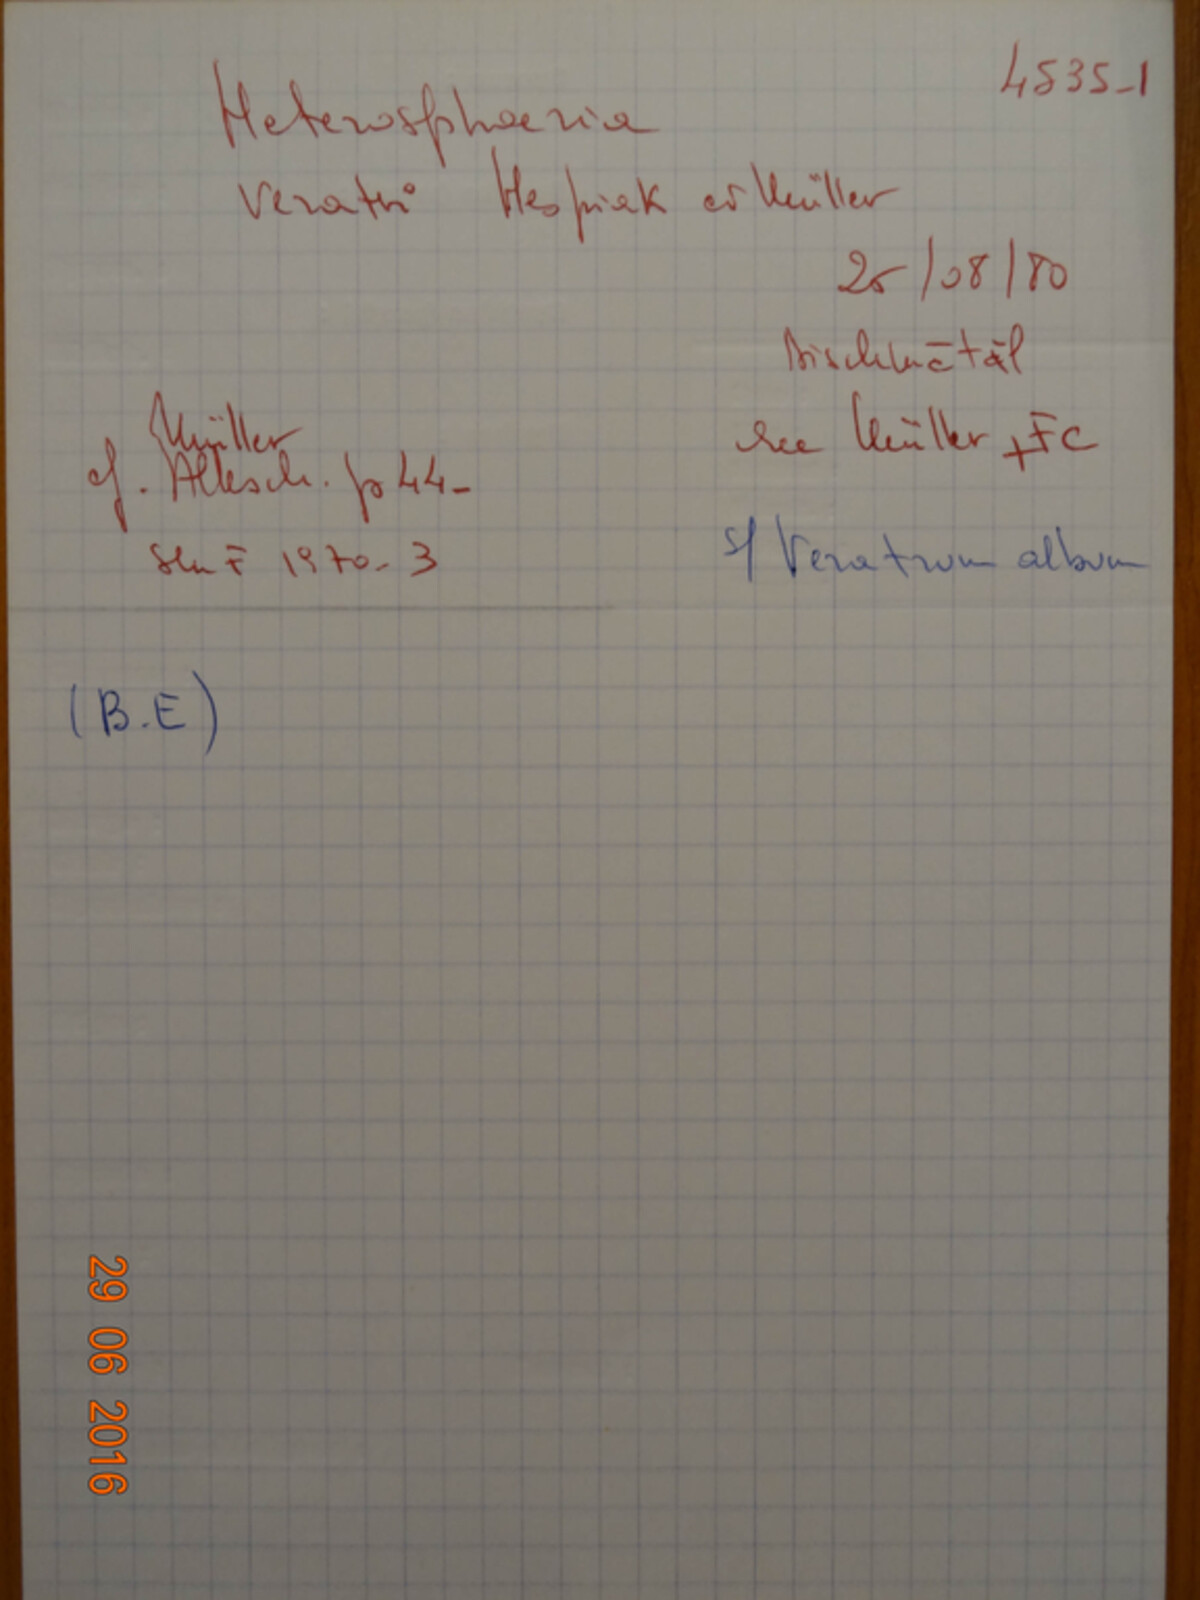 4535-1
Heterosphaeria
Veratri Hespiak et Müller
25/08/80
Dischmatal
Müller
lee Müller + FC
cf. Allesch. p 44-
1970-3
s/ Veratrum album
(B.E)
29 06 2016